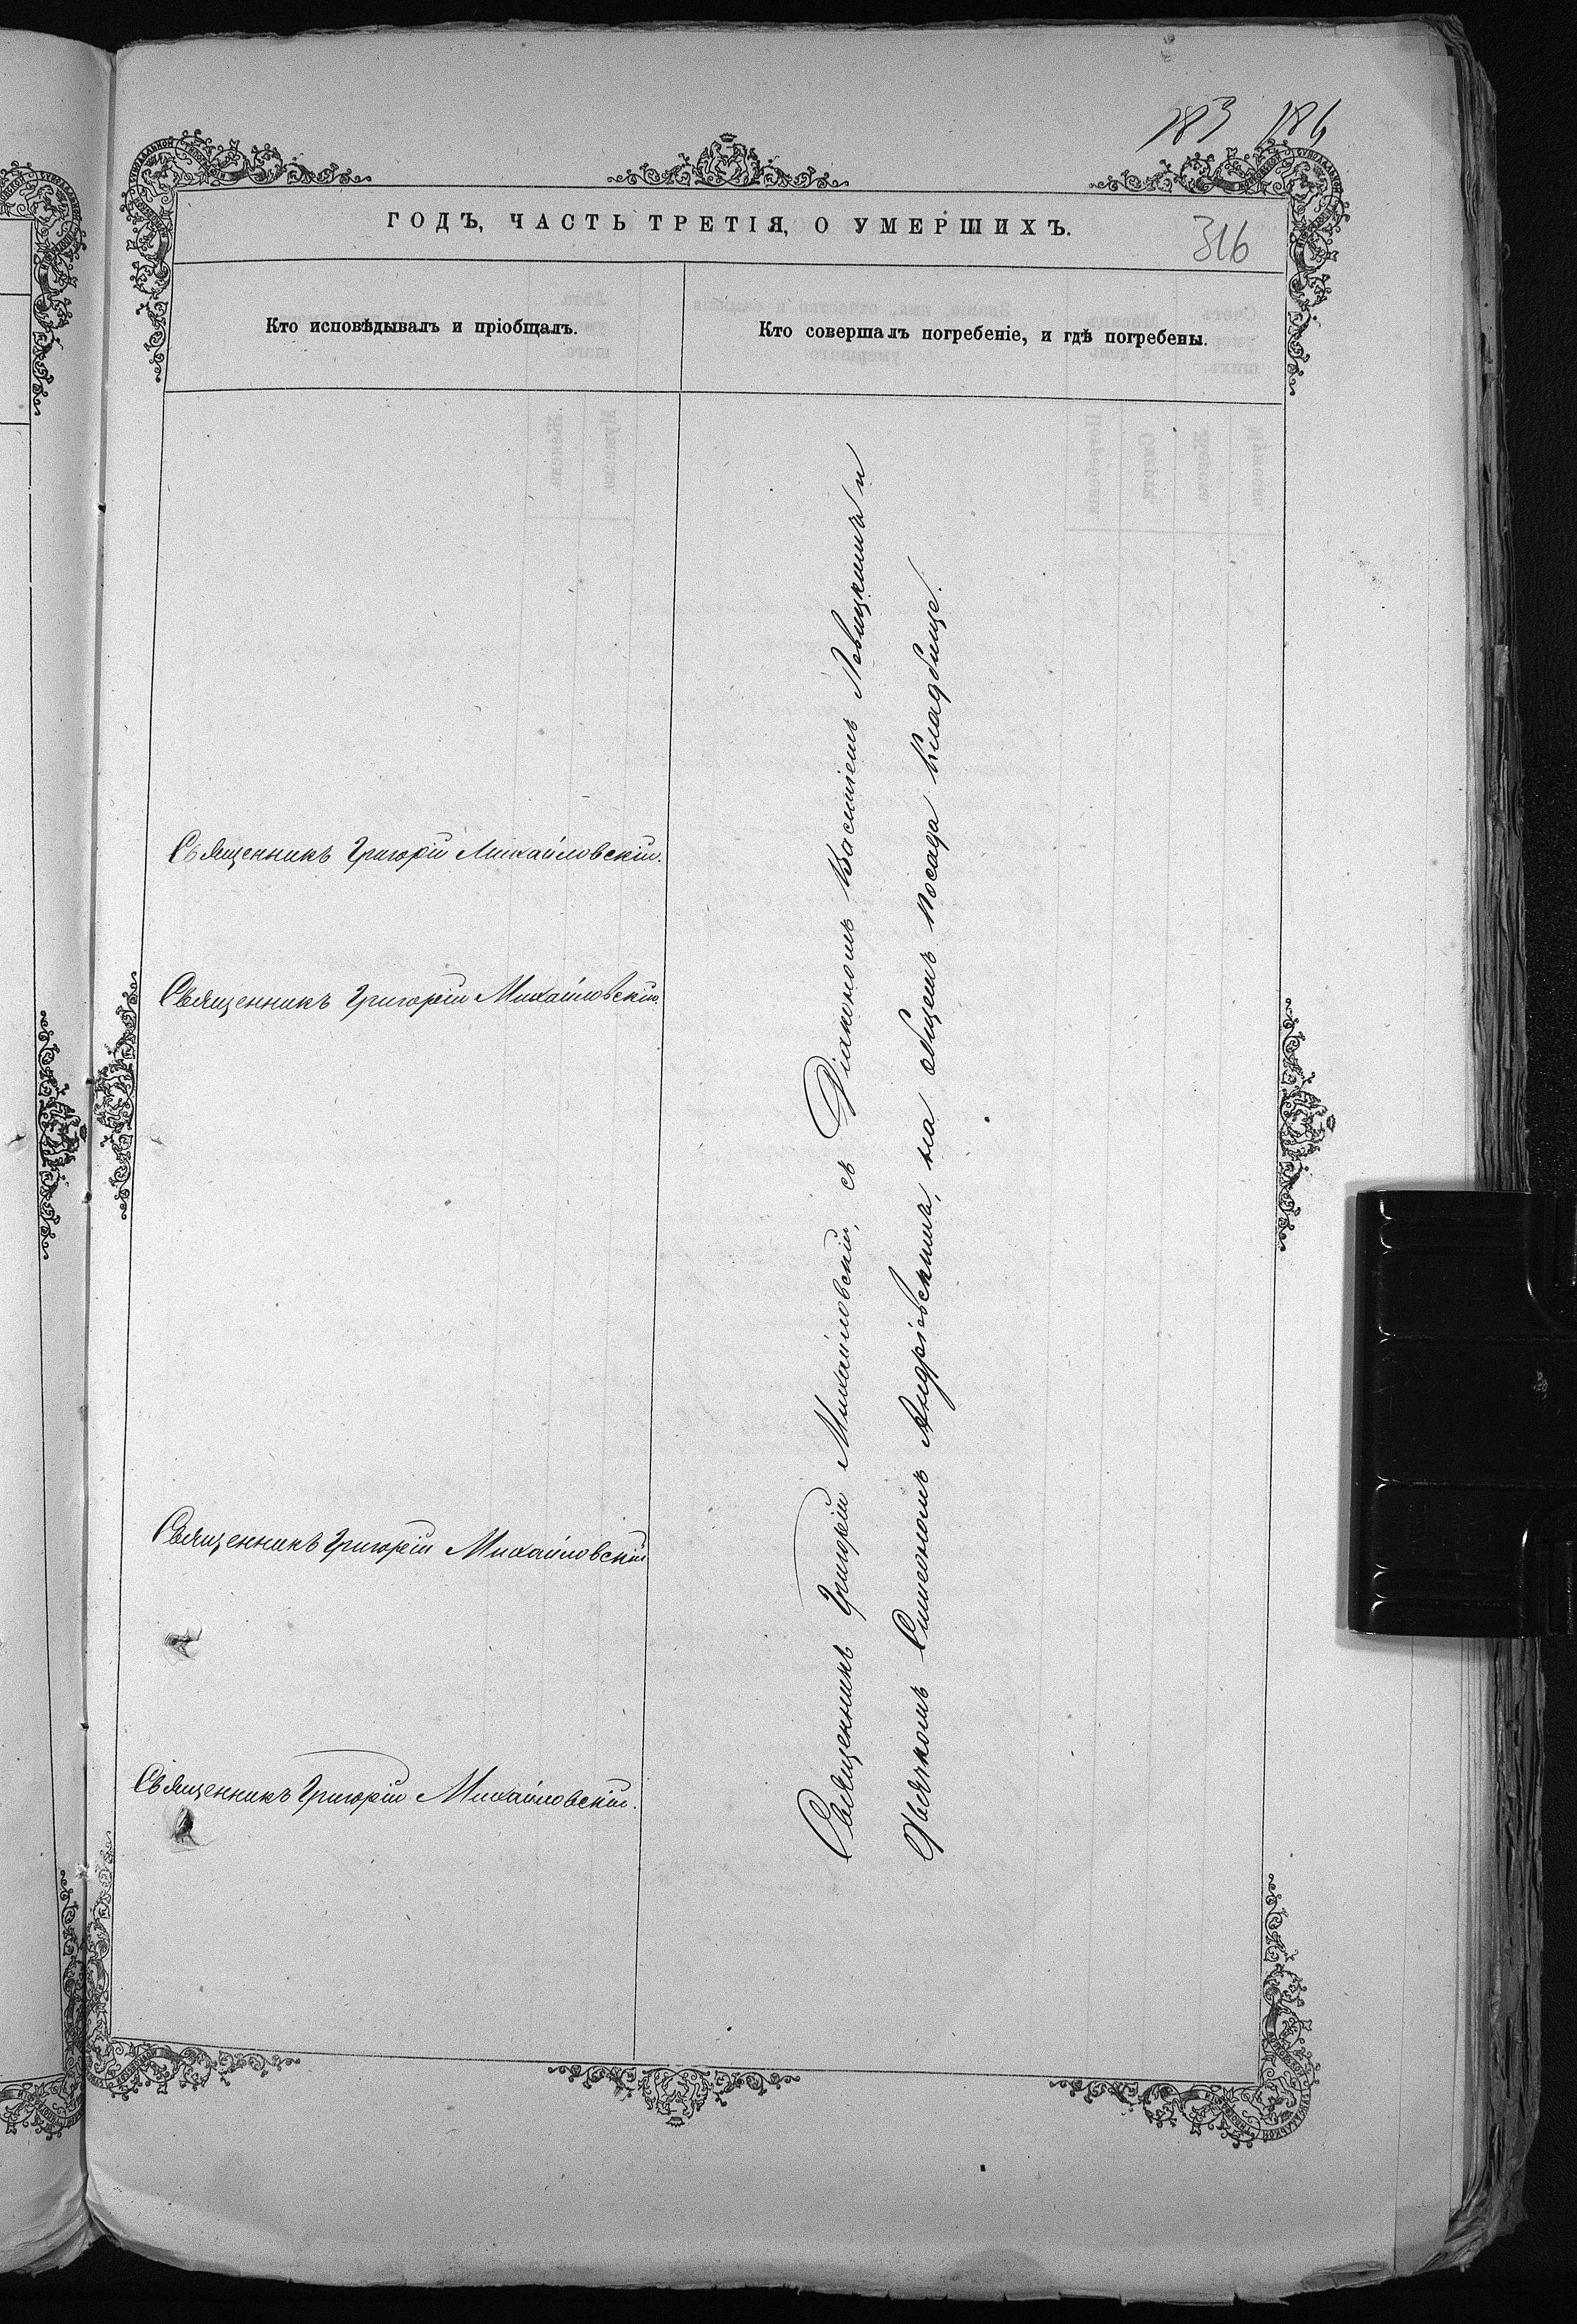 183 184
ГОДЪ, ЧАСТЬ ТРЕТІЯ, О УМЕРШИХЪ.
316
Кто исповѣдывалъ и пріобщалъ.
Кто совершалъ погребеніе, и гдѣ погребены.
Священникъ Григорій Михайловскій.
Священникъ Григорій Михайловскій.
Священникъ Григорій Михайловскій
Священникъ Григорій Михайловскій.
Священникъ Григорій Михайловскій, съ Діакономъ Василіемъ Левицкимъ и
Дьячкомъ Симеономъ Андріевскимъ, на общемъ посада кладбище.